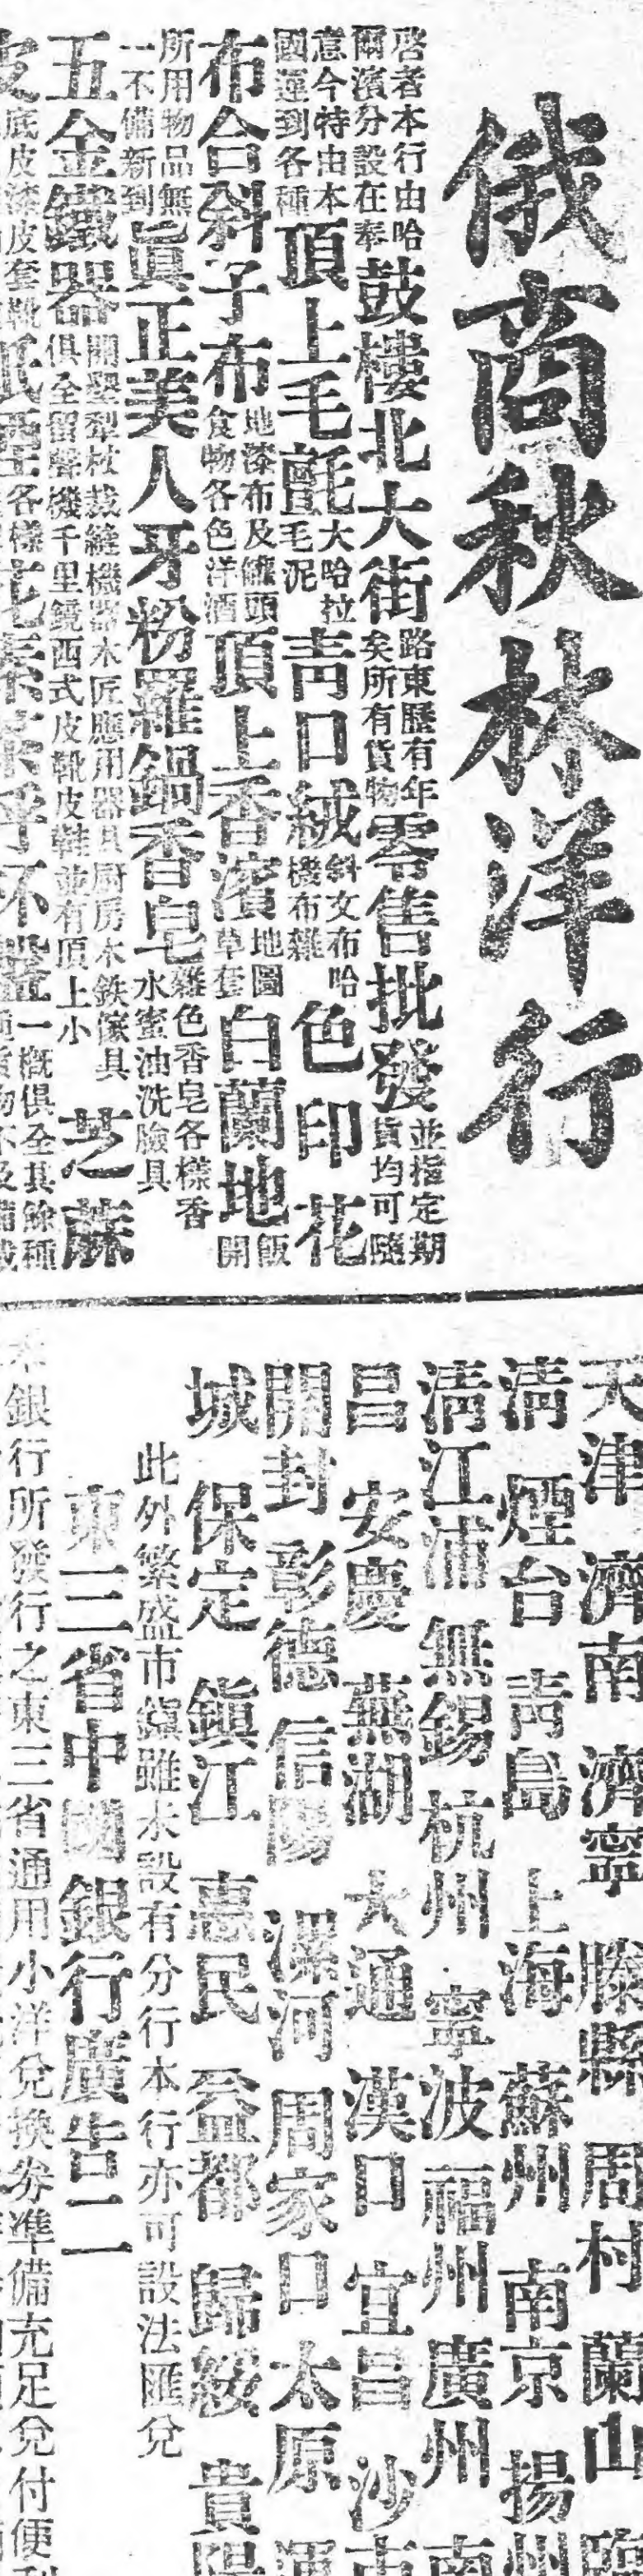 俄商秋林洋行
啓者本行由哈爾濱分設在奉鼓樓北大街路東歷有年矣所有貨物零售批發並指定期貨均可隨
意今特由本國運到各種頂上毛氈大哈拉毛泥靑口絨斜文布哈機布雜色印花
布合斜子布地漆布及罐頭食物各色洋酒頂上香濱地圖草套白蘭地飯開
所用物品無一不備新到眞正美人牙粉羅鍋香皂雜色香皂各樣香水蜜油洗臉具
五金鐵器開墾犁杖裁縫機器木匠應用器具厨房木鉄傢具俱全留聲機千里鏡西式皮靴皮鞋並有頂上小芝蔴
皮底皮漆皮套靴紙各樣花一概俱全其餘種
天津 濟南 濟寧 滕縣 周村 蘭山 臨
淸 煙台 靑島 上海 蘇州 南京 揚州
淸江浦 無錫 杭州 寧波 福州 廣州 南
昌 安慶 蕪湖 大通 漢口 宜昌 沙市
開封 彰德 信陽 漯河 周家口 太原 運
城 保定 鎭江 惠民 益都 歸綏 貴陽
此外繁盛市鎭雖未設有分行本行亦可設法匯兌
東三省中國銀行廣告二
本銀行所發行之東三省通用小洋兌換券準備充足兌付便利